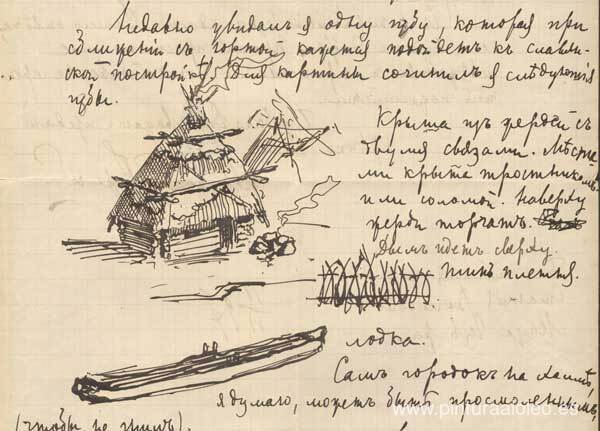 Недавно увидалъ я одну избу, которая при
сближенiи съ юртой кажется подойдетъ къ славян-
ской постройкѣ. Для картины сочинилъ я слѣдующiя
избы.
Крыша изъ жердей съ
двумя связами. Мѣста-
ми крыта тростникомъ
или соломой. Наверху
жерди торчатъ.
Дымъ идетъ сверху.
Типъ плетня.
лодка.
Самъ городокъ на холмѣ,
я думаю, можетъ быть просмоленнымъ,
(чтобы не гнилъ).
www.pinturaaloleo.es